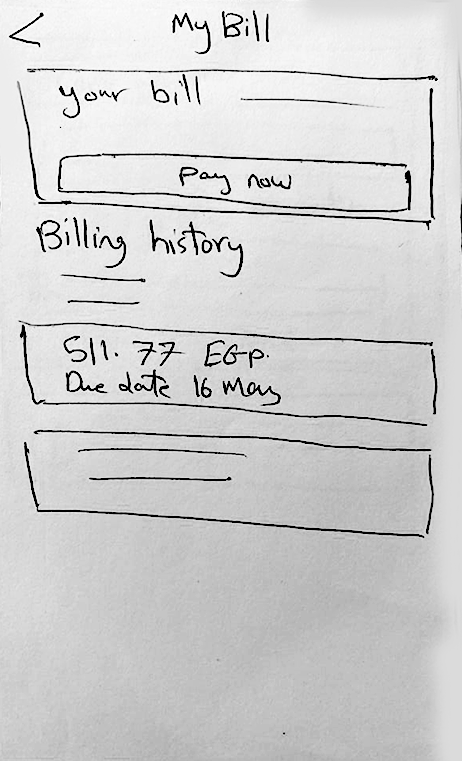 My Bill
your bill
Pay now
Billing history
511.77 EGP.
Due date 16 May